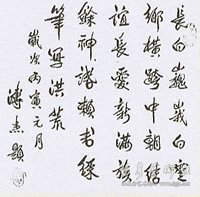 長白巍峩白雲
鄉橫跨中朝結
誼長愛新滿族
餘神話賴綵
筆寫洪荒
歲次丙寅元月
溥杰題